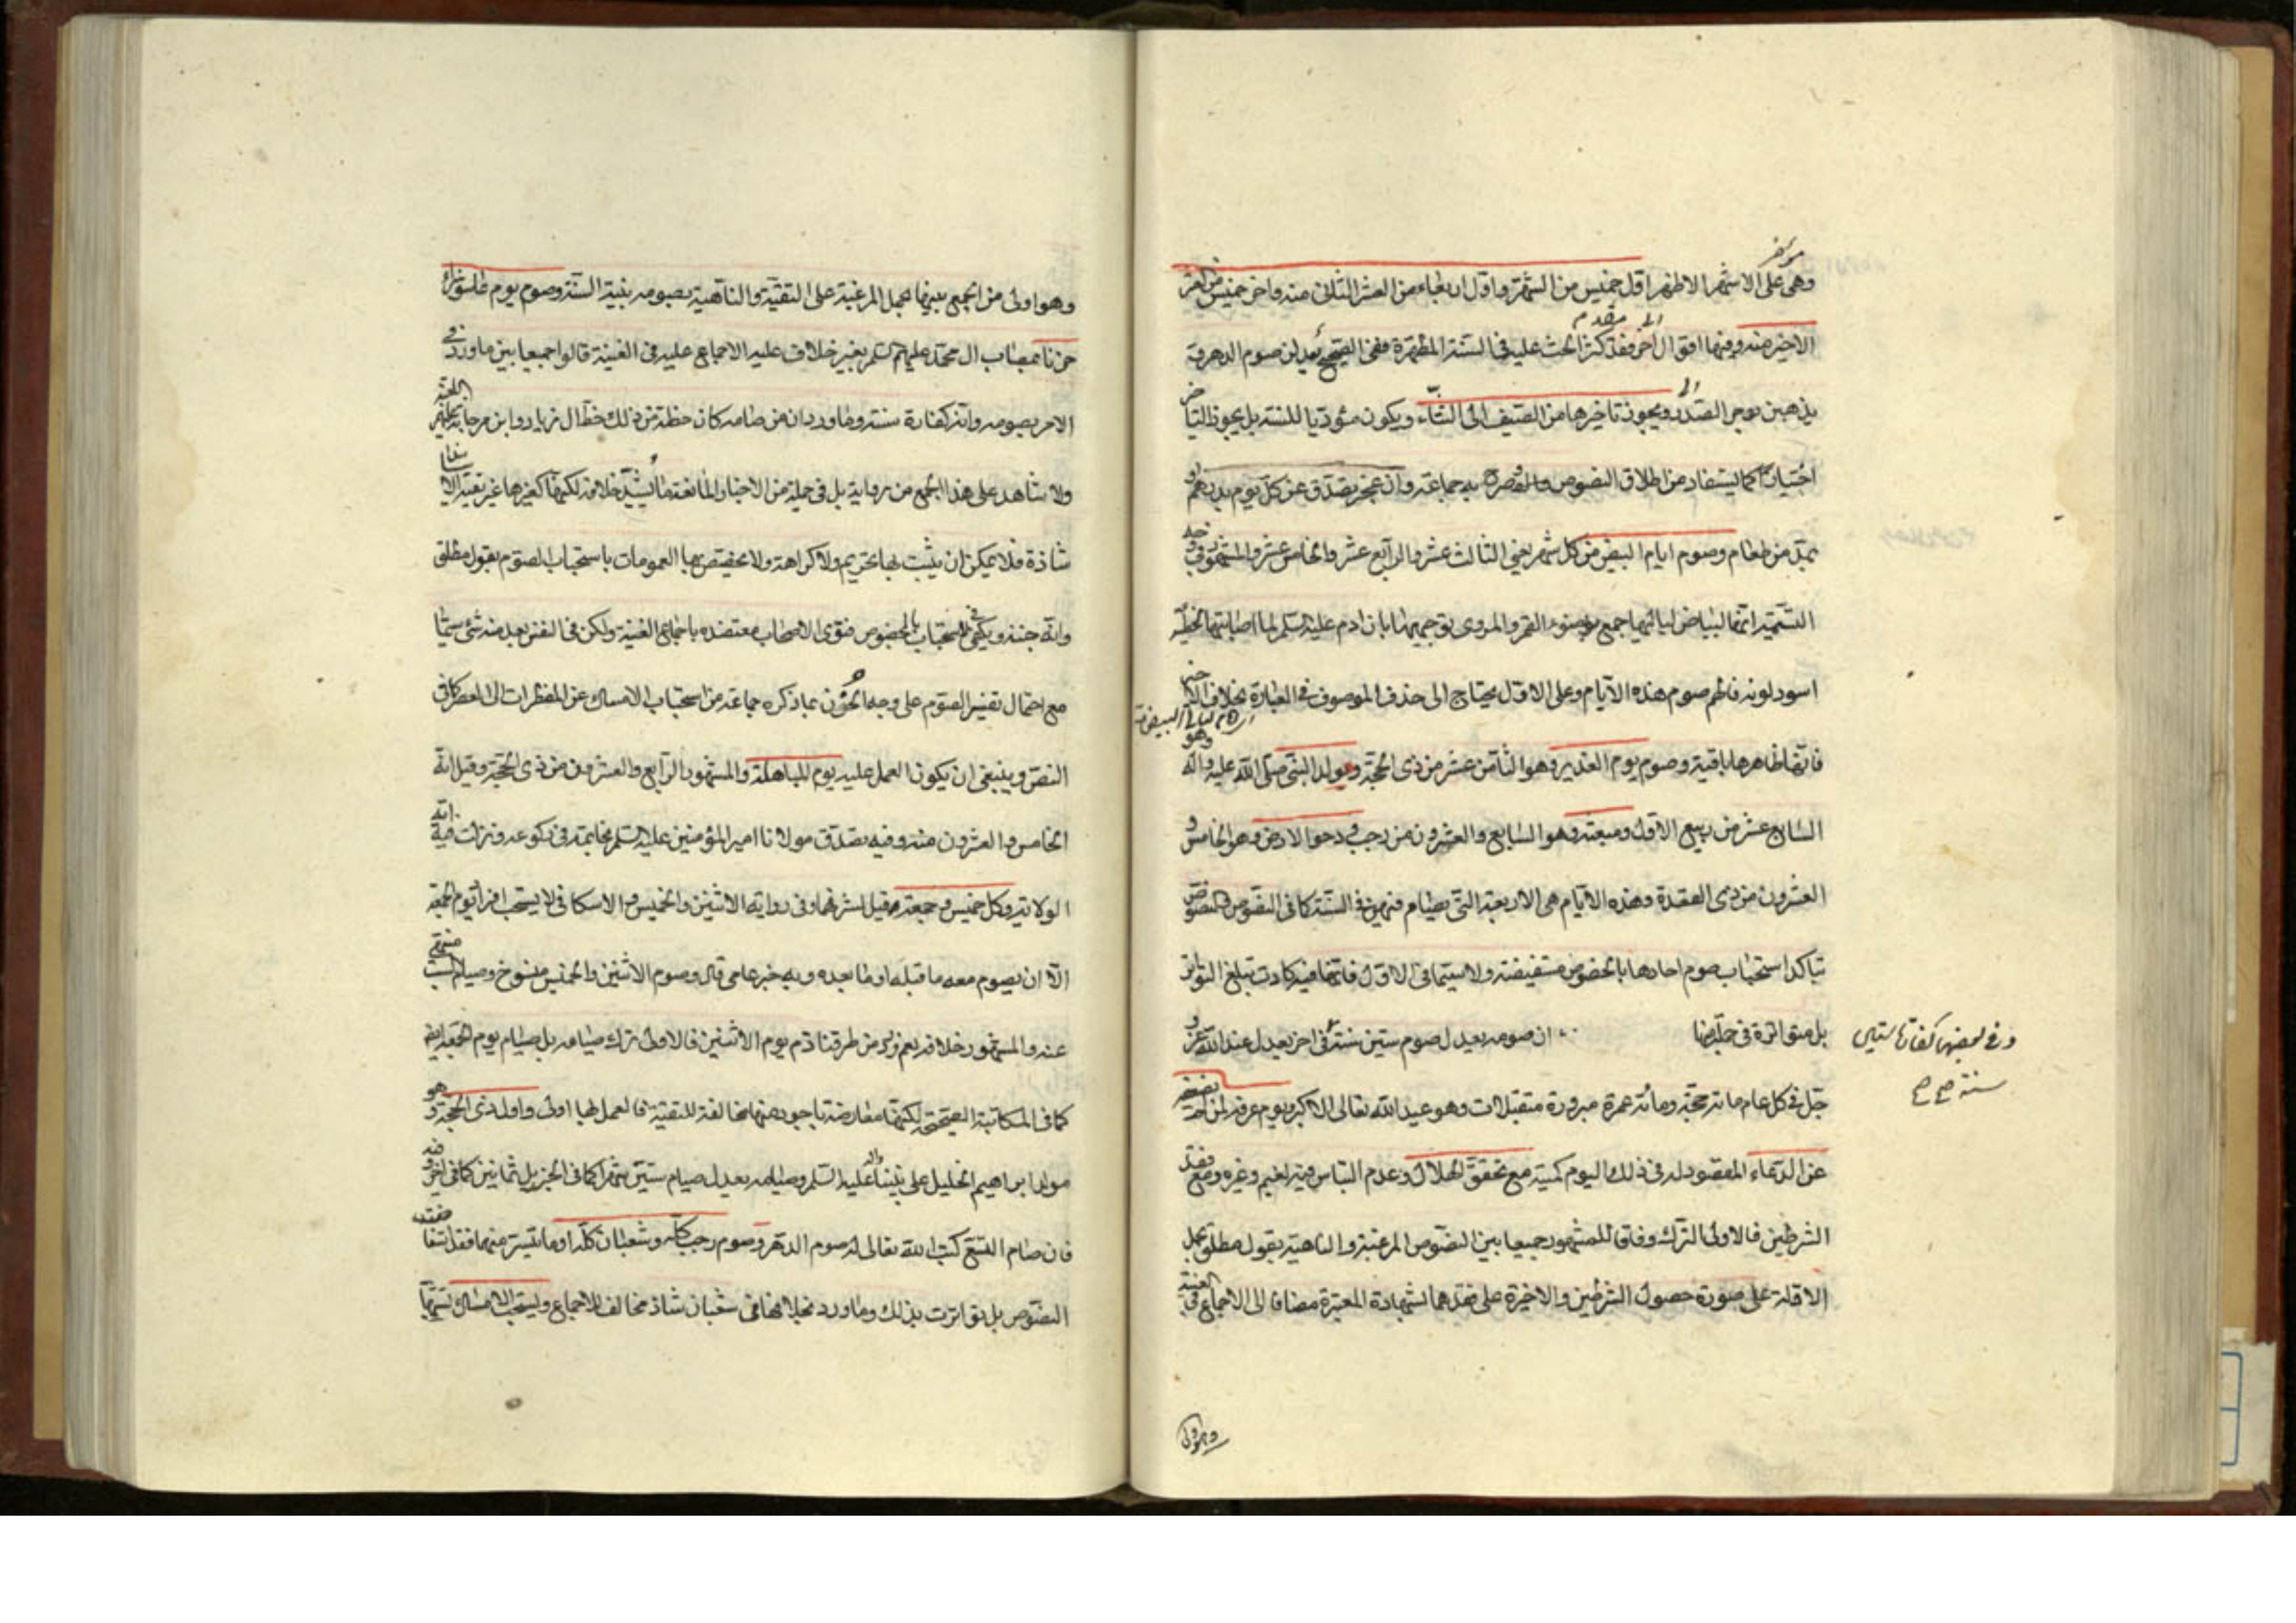 وهى على الاشهر الاظهر اول خميس من الشهر واول اربعاء من العشر الثانى منه واخر خميس من العشر
الاخير منه وفيها اقوال اخر فقد كثر الحث عليه فى السنة المطهرة ففى الصحيح يعدلن صوم الدهر و
يذهبن بوحر الصدر ويجوز تاخيرها من الصيف الى الشتاء ويكون مؤديا للسنة بل يجوز التاخير
اختيارا كما يستفاد من اطلاق النصوص به جماعة وان عجز يصدق عن كل يوم بدرهم او
بمد من طعام وصوم ايام البيض من كل شهر يعنى الثالث عشر والرابع عشر والخامس عشر والمشهور فى وجه
التسمية انها لبياض لياليها اجمع بضوء القمر والمروى توجيهها بان ادم عليه السلم لما اصابته الخطيئة
اسود لونه فالهم صوم هذه الايام وعلى الاول يحتاج الى حذف الموصوف فى العبارة بخلاف الاخير
فانها ظاهرها باقية وصوم يوم الغدير وهو الثامن عشر من ذى الحجة ومولد النبى صلى الله عليه واله وهو
السابع عشر من ربيع الاول ومبعثه وهو السابع والعشرون من رجب ودحو الارض وهو الخامس و
العشرون من ذى القعدة وهذه الايام هى الاربعة التى يصام فيهن فى السنة كما فى النصوص والنصوص
بتاكد استحباب صوم احادها بالخصوص مستفيضة ولا سيما فى الاول فانها فيه كادت تبلغ التواتر
بل متواترة فى جملة منها ان صومه يعدل صوم ستين سنة وفى اخر يعدل عند الله عز و
وفى بعضها كفارة ستين
سنة صح صح
جل فى كل عام مائة حجة ومائة عمرة مبرورة متقبلات وهو عيد الله تعالى الاكبر ويوم عرفة لمن لا يضعفه
عن الدعاء المقصود له فى ذلك اليوم كمية مع تحقق الهلال وعدم التباس فيه لغيم وغيره ومع فقد
الشرطين فالاولى الترك وفاقا للمشهور جمعا بين النصوص المرغبة والناهية بقول مطلق بحمل
الاولة على صورة حصول الشرطين والاخيرة على فقدهما لشهادة المعتبرة مضافا الى الاجماع فى الغنية
وهو اولى
وهو اولى من الجمع بينها بحمل المرغبة على التقية والناهية بصومه بنية السنة وصوم يوم عاشوراء
حزنا بمصاب ال محمد عليهم السلم بغير خلاف عليه الاجماع عليه فى الغنية قالوا جمعا بين ما ورد فى
الامر بصومه وانه كفارة سنة وما ورد ان من صامه كان حظه من ذلك حظ ال زياد وابن مرجانة عليهم اللعنة
ولا شاهد على هذا الجمع من رواية بل فى جملة من الاخبار المانعة ما يشيد خلافه لكنها كغيرها غير نقية الاسناد
شاذة فلا يمكن ان يثبت بها تحريم ولا كراهة ولا يخصص بها العمومات باستحباب الصوم بقول مطلق
وانه جنة ويكفى فى الاستحباب بالخصوص فتوى الاصحاب معتضدة باجماع الغنية ولكن فى النفس بعد منه شئ سيما
مع احتمال تفسير الصوم على وجه الحزن بما ذكره جماعة من استحباب الامساك عن المفطرات الى العصر كما فى
النص وينبغى ان يكون العمل عليه يوم المباهلة والمشهور الرابع والعشرون من ذى الحجة وقيل انه
الخامس والعشرون منه وفيه تصدق مولانا امير المؤمنين عليه السلم بخاتمه فى ركوعه ونزلت فيه اية
الولاية وكل خميس وجمعة قيل لشرفهما وفى رواية الاثنين والخميس والاسكافى لا يستحب افراد يوم الجمعة
الا ان يصوم معه ما قبله او ما بعده وبه خبر عامى قال وصوم الاثنين والخميس منسوخ وصيام السبت منهى
عنه والمشهور خلافه نعم ورد من طرقنا ذم يوم الاثنين فالاولى ترك صيامه بل صيام يوم الجمعة ايضا
كما فى المكاتبة الصحيحة لكنها معارضة باجود منها مخالفة للتقية فالعمل بها اولى واول ذى الحجة وهو
مولد ابراهيم الخليل على نبينا واله عليه السلم وصيامه يعدل صيام ستين شهرا كما فى الخبر بل ثمانين كما فى اخر وفيه
فان صام التسع كتب الله تعالى له صوم الدهر وصوم رجب كله وشعبان كله او ما تيسر منهما فقد استفاضت
النصوص بل تواترت بذلك وما ورد بخلافها فى شعبان شاذ مخالف للاجماع ويستحب الامساك تشبها